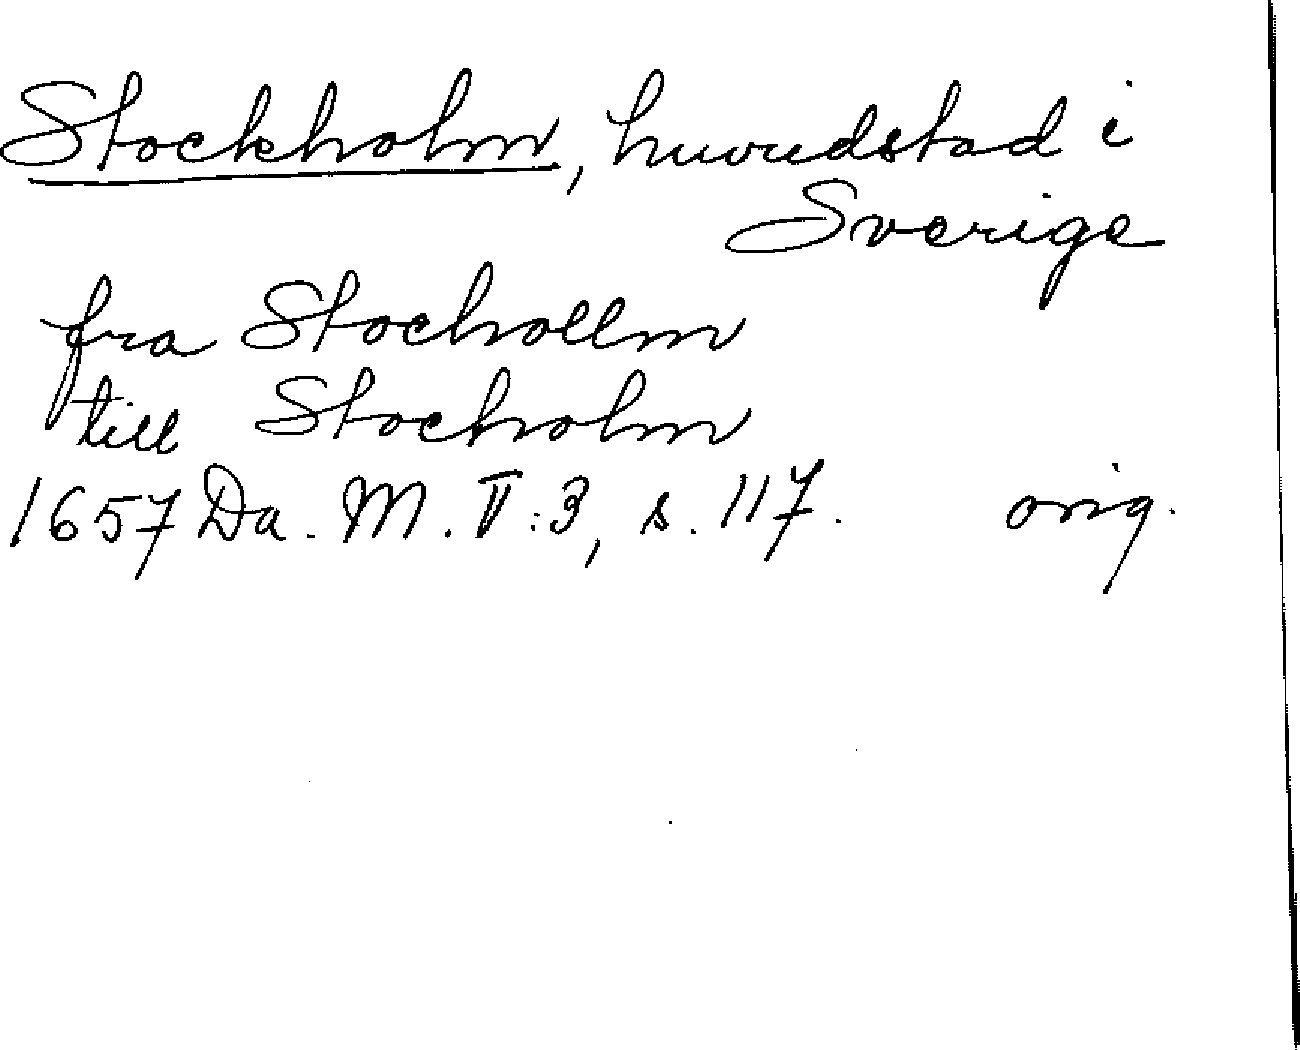 Stockholm, huvudstad i
Sverige
fra Stochollm
till Stocholm
1657 Da. M. V:3, s. 117. orig.